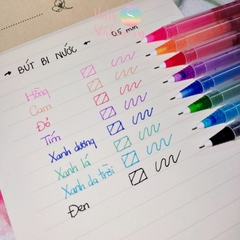 0.5 mm
→ BÚT BI NƯỚC ←
Hồng
Cam
Đỏ
Tím
Xanh dương
Xanh lá
Xanh da trời
Đen